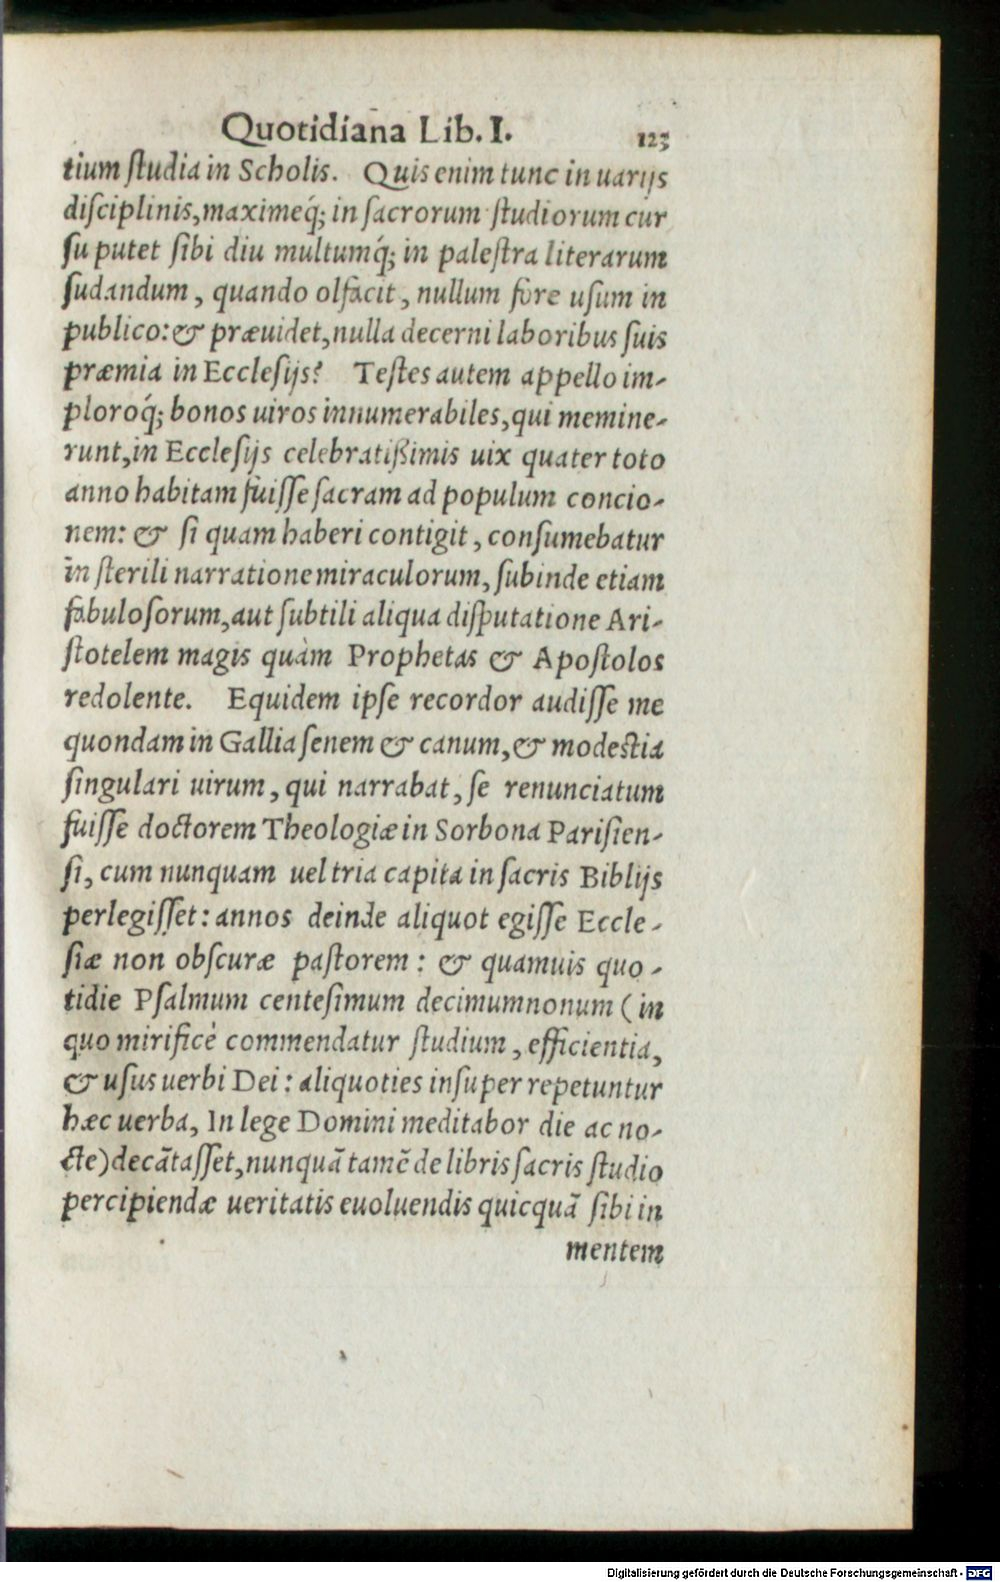 Quotidiana Lib. I. 123
tium ſtudia in Scholis. Quis enim tunc in uarijs
diſciplinis, maximeq́; in ſacrorum ſtudiorum cur
ſu putet ſibi diu multumq́; in paleſtra literarum
ſudandum, quando olfacit, nullum fore uſum in
publico: & præuidet, nulla decerni laboribus ſuis
præmia in Eccleſijs? Teſtes autem appello im-
ploroq́; bonos uiros innumerabiles, qui memine-
runt, in Eccleſijs celebratißimis uix quater toto
anno habitam fuiſſe ſacram ad populum concio-
nem: & ſi quam haberi contigit, conſumebatur
in ſterili narratione miraculorum, ſubinde etiam
fabuloſorum, aut ſubtili aliqua diſputatione Ari-
ſtotelem magis quàm Prophetas & Apoſtolos
redolente. Equidem ipſe recordor audiſſe me
quondam in Gallia ſenem & canum, & modeſtia
ſingulari uirum, qui narrabat, ſe renunciatum
fuiſſe doctorem Theologiæ in Sorbona Pariſien-
ſi, cum nunquam uel tria capita in ſacris Biblijs
perlegiſſet: annos deinde aliquot egiſſe Eccle-
ſiæ non obſcuræ paſtorem: & quamuis quo-
tidie Pſalmum centeſimum decimumnonum (in
quo mirificè commendatur ſtudium, efficientia,
& uſus uerbi Dei: aliquoties inſuper repetuntur
hæc uerba, In lege Domini meditabor die ac no-
cte) decãtaſſet, nunquã tamẽ de libris ſacris ſtudio
percipiendæ ueritatis euoluendis quicquã ſibi in
mentem
Digitalisierung gefördert durch die Deutsche Forschungsgemeinschaft - DFG